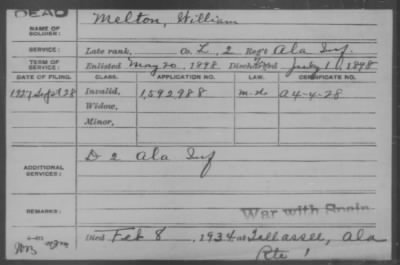 DEAD
NAME OF SOLDIER: Melton, William
SERVICE: Late rank, Co. L, 2 Reg't Ala Inf.
TERM OF SERVICE: Enlisted May 20, 1898 Disch'g'd July 1, 1898
DATE OF FILING. CLASS. APPLICATION NO. LAW. CERTIFICATE NO.
1927 Sept 28 Invalid, 1,592,988 A-4-4-28
Widow,
Minor,
ADDITIONAL SERVICES: D 2 Ala Inf
REMARKS: War with Spain
Died Feb 8, 1934 at Tallassee, Ala
Rte 1